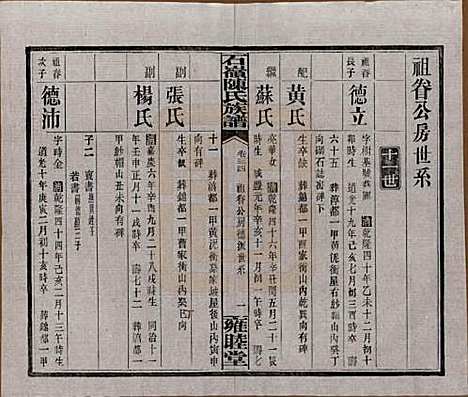 祖眷公房世系
祖眷
長子
德立
字樹基號
乾隆四十年乙未十二月初十
卯時生
道光十九年己亥七月初三酉時卒
壽
六十五
葬淳都一甲黃泥衝
山內癸丁
配
黃氏
生卒缺
葬錦都一甲
家衝山內乾巽向有
碑
繼
蘇氏
乾隆四十六年辛丑閏五月二十一
時生
咸豐元年辛亥十一月初一午時卒
壽七
石嶺陳氏族譜
卷三四
祖眷公房德派世系
一
雍睦堂
十一
葬淳都一甲
屋後山內寅申
向有碑
副
張氏
生卒缺
葬錦都一甲曹家衝山內癸
丁向
副
楊氏
嘉慶六年辛酉九月二十八戌時生
同治十一
年壬申正月十一戌時卒
壽七十二
葬錦都一
甲紗帽山丑未向有碑
子二
祖眷
次子
德沛
字時金
乾隆四十四年己亥二月十三午時生
道光十年庚寅二月初十亥時卒
葬錦都一甲